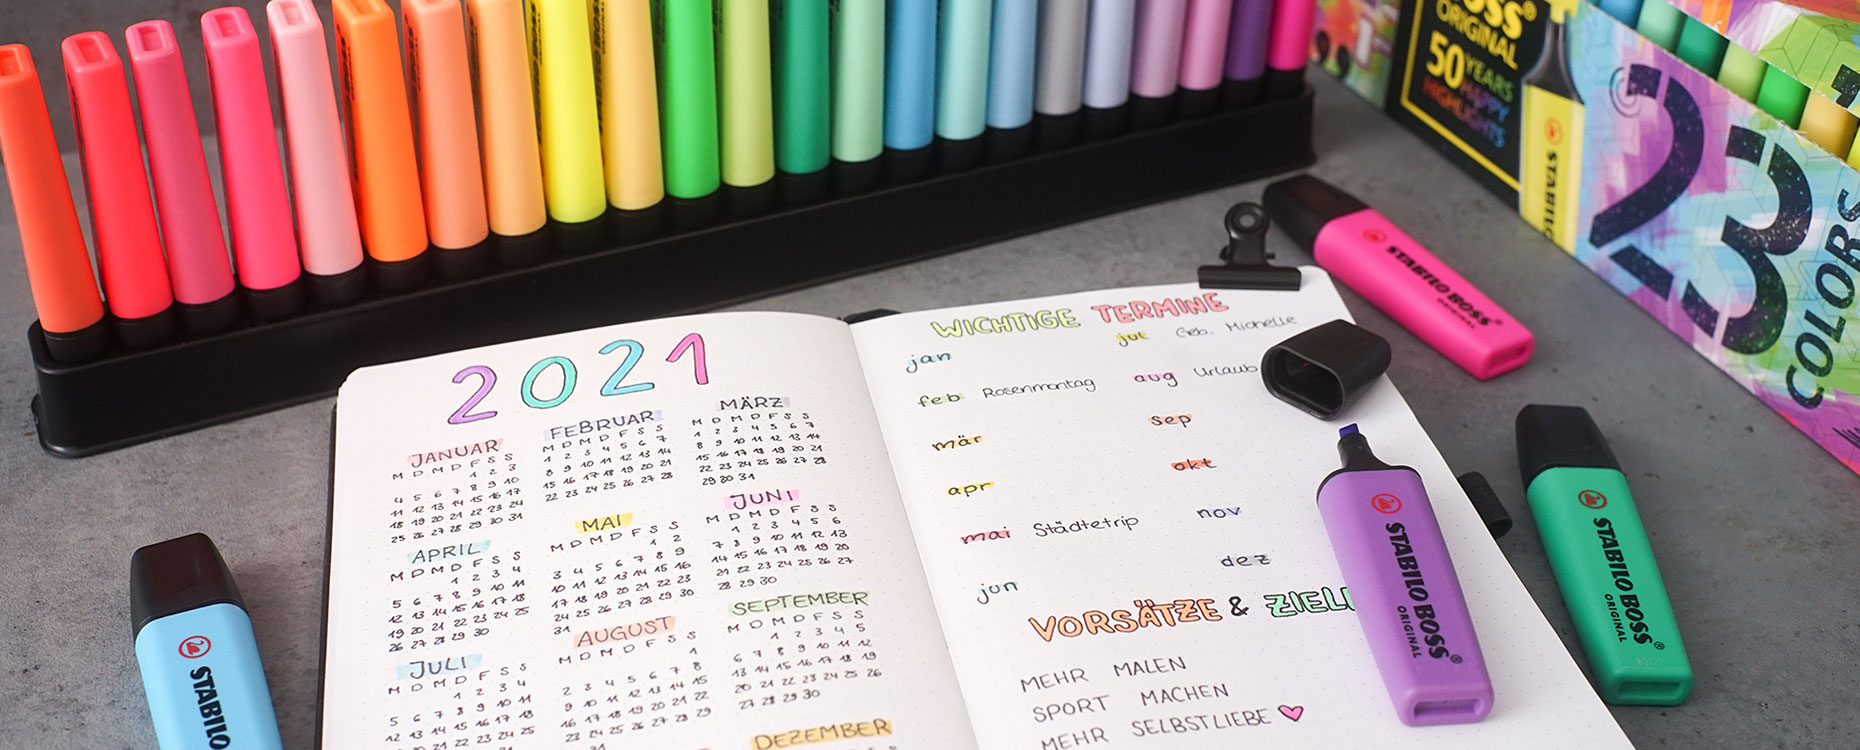 BOSS®
ORIGINAL
50 YEARS
HAPPY
HIGHLIGHTS
STABILO
23
COLORS
STABILO BOSS®
ORIGINAL
STABILO BOSS®
ORIGINAL
STABILO BOSS®
ORIGINAL
STABILO
2021
JANUAR
M D M D F S S
1 2 3
4 5 6 7 8 9 10
11 12 13 14 15 16 17
18 19 20 21 22 23 24
25 26 27 28 29 30 31
FEBRUAR
M D M D F S S
1 2 3 4 5 6 7
8 9 10 11 12 13 14
15 16 17 18 19 20 21
22 23 24 25 26 27 28
MÄRZ
M D M D F S S
1 2 3 4 5 6 7
8 9 10 11 12 13 14
15 16 17 18 19 20 21
22 23 24 25 26 27 28
29 30 31
APRIL
M D M D F S S
1 2 3 4
5 6 7 8 9 10 11
12 13 14 15 16 17 18
19 20 21 22 23 24 25
26 27 28 29 30
MAI
M D M D F S S
1 2
3 4 5 6 7 8 9
10 11 12 13 14 15 16
17 18 19 20 21 22 23
24 25 26 27 28 29 30
31
JUNI
M D M D F S S
1 2 3 4 5 6
7 8 9 10 11 12 13
14 15 16 17 18 19 20
21 22 23 24 25 26 27
28 29 30
JULI
M D M D F S S
1 2 3 4
5 6 7 8 9 10 11
12 13 14 15 16 17 18
AUGUST
M D M D F S S
1
2 3 4 5 6 7 8
9 10 11 12 13 14 15
16 17 18 19 20 21 22
23 24 25 26 27 28 29
31
SEPTEMBER
M D M D F S S
1 2 3 4 5
6 7 8 9 10 11 12
13 14 15 16 17 18 19
20 21 22 23 24 25 26
27 28 29 30
DEZEMBER
WICHTIGE TERMINE
jan
feb Rosenmontag
mär
apr
mai Städtetrip
jun
jul Geb. Michelle
aug Urlaub
sep
okt
nov
dez
VORSÄTZE & ZIELE
MEHR MALEN
SPORT MACHEN
MEHR SELBSTLIEBE